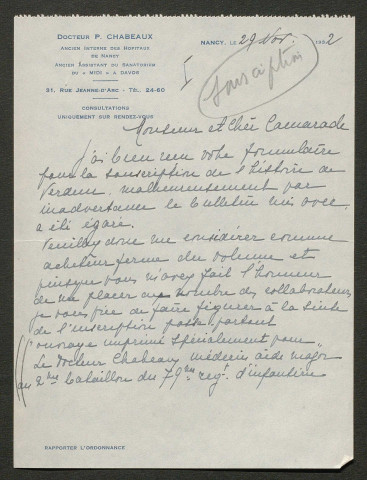 DOCTEUR P. CHABEAUX
ANCIEN INTERNE DES HOPITAUX
DE NANCY
ANCIEN ASSISTANT DU SANATORIUM
DU « MIDI » A DAVOS
31, RUE JEANNE-D'ARC - TÉL. 24-60
CONSULTATIONS
UNIQUEMENT SUR RENDEZ-VOUS
NANCY, LE 29 Nov. 1932
I
souscription
Monsieur et Cher Camarade
j'ai bien reçu votre formulaire
pour la souscription de l'histoire de
Verdun, malheureusement par
inadvertance le bulletin mis avec
a été égaré.
Veuillez donc me considérer comme
acheteur ferme du volume et
puisque vous m'avez fait l'honneur
de me placer au nombre des collaborateurs
je vous prie de faire figurer à la suite
de l'inscription portant
"ouvrage imprimé spécialement pour"
Le Docteur Chabeaux médecin aide major
au 2me bataillon du 79me regt. d'infanterie
RAPPORTER L'ORDONNANCE